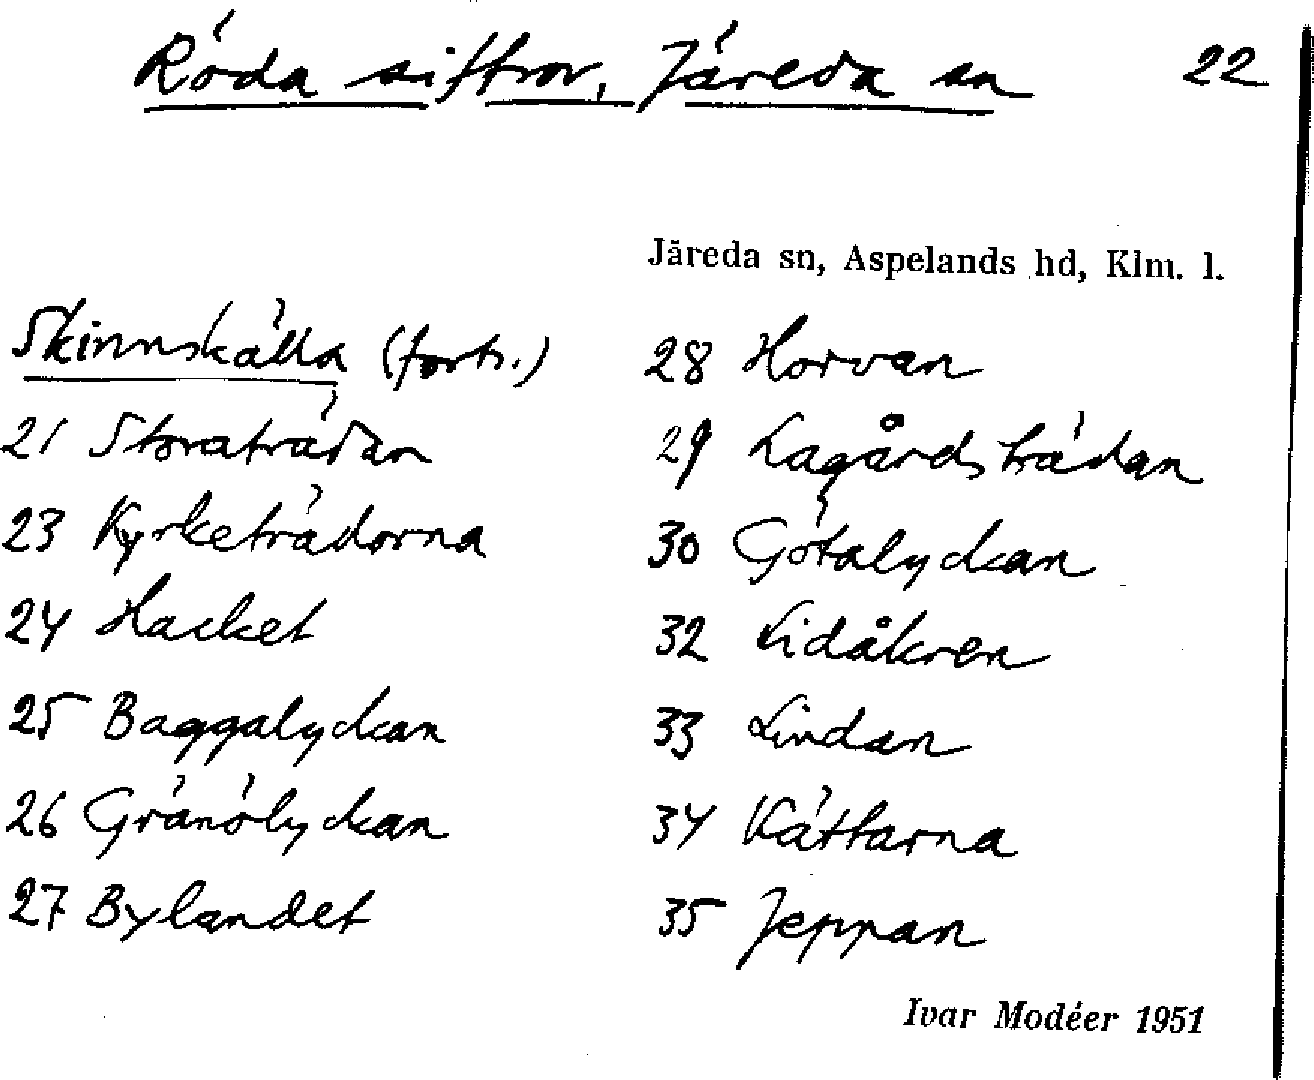 Röda siffror, Järeda sn 22
Järeda sn, Aspelands hd, Klm. l.
Skinnskälla (forts.)
21 Storaträdan
23 Kyrketrädorna
24 Hacket
25 Baggalyckan
26 Gränölyckan
27 Bylandet
28 Horvan
29 Lagårdsträdan
30 Götalyckan
32 Lidåkren
33 Lindan
34 Kättarna
35 Jeppan
Ivar Modéer 1951